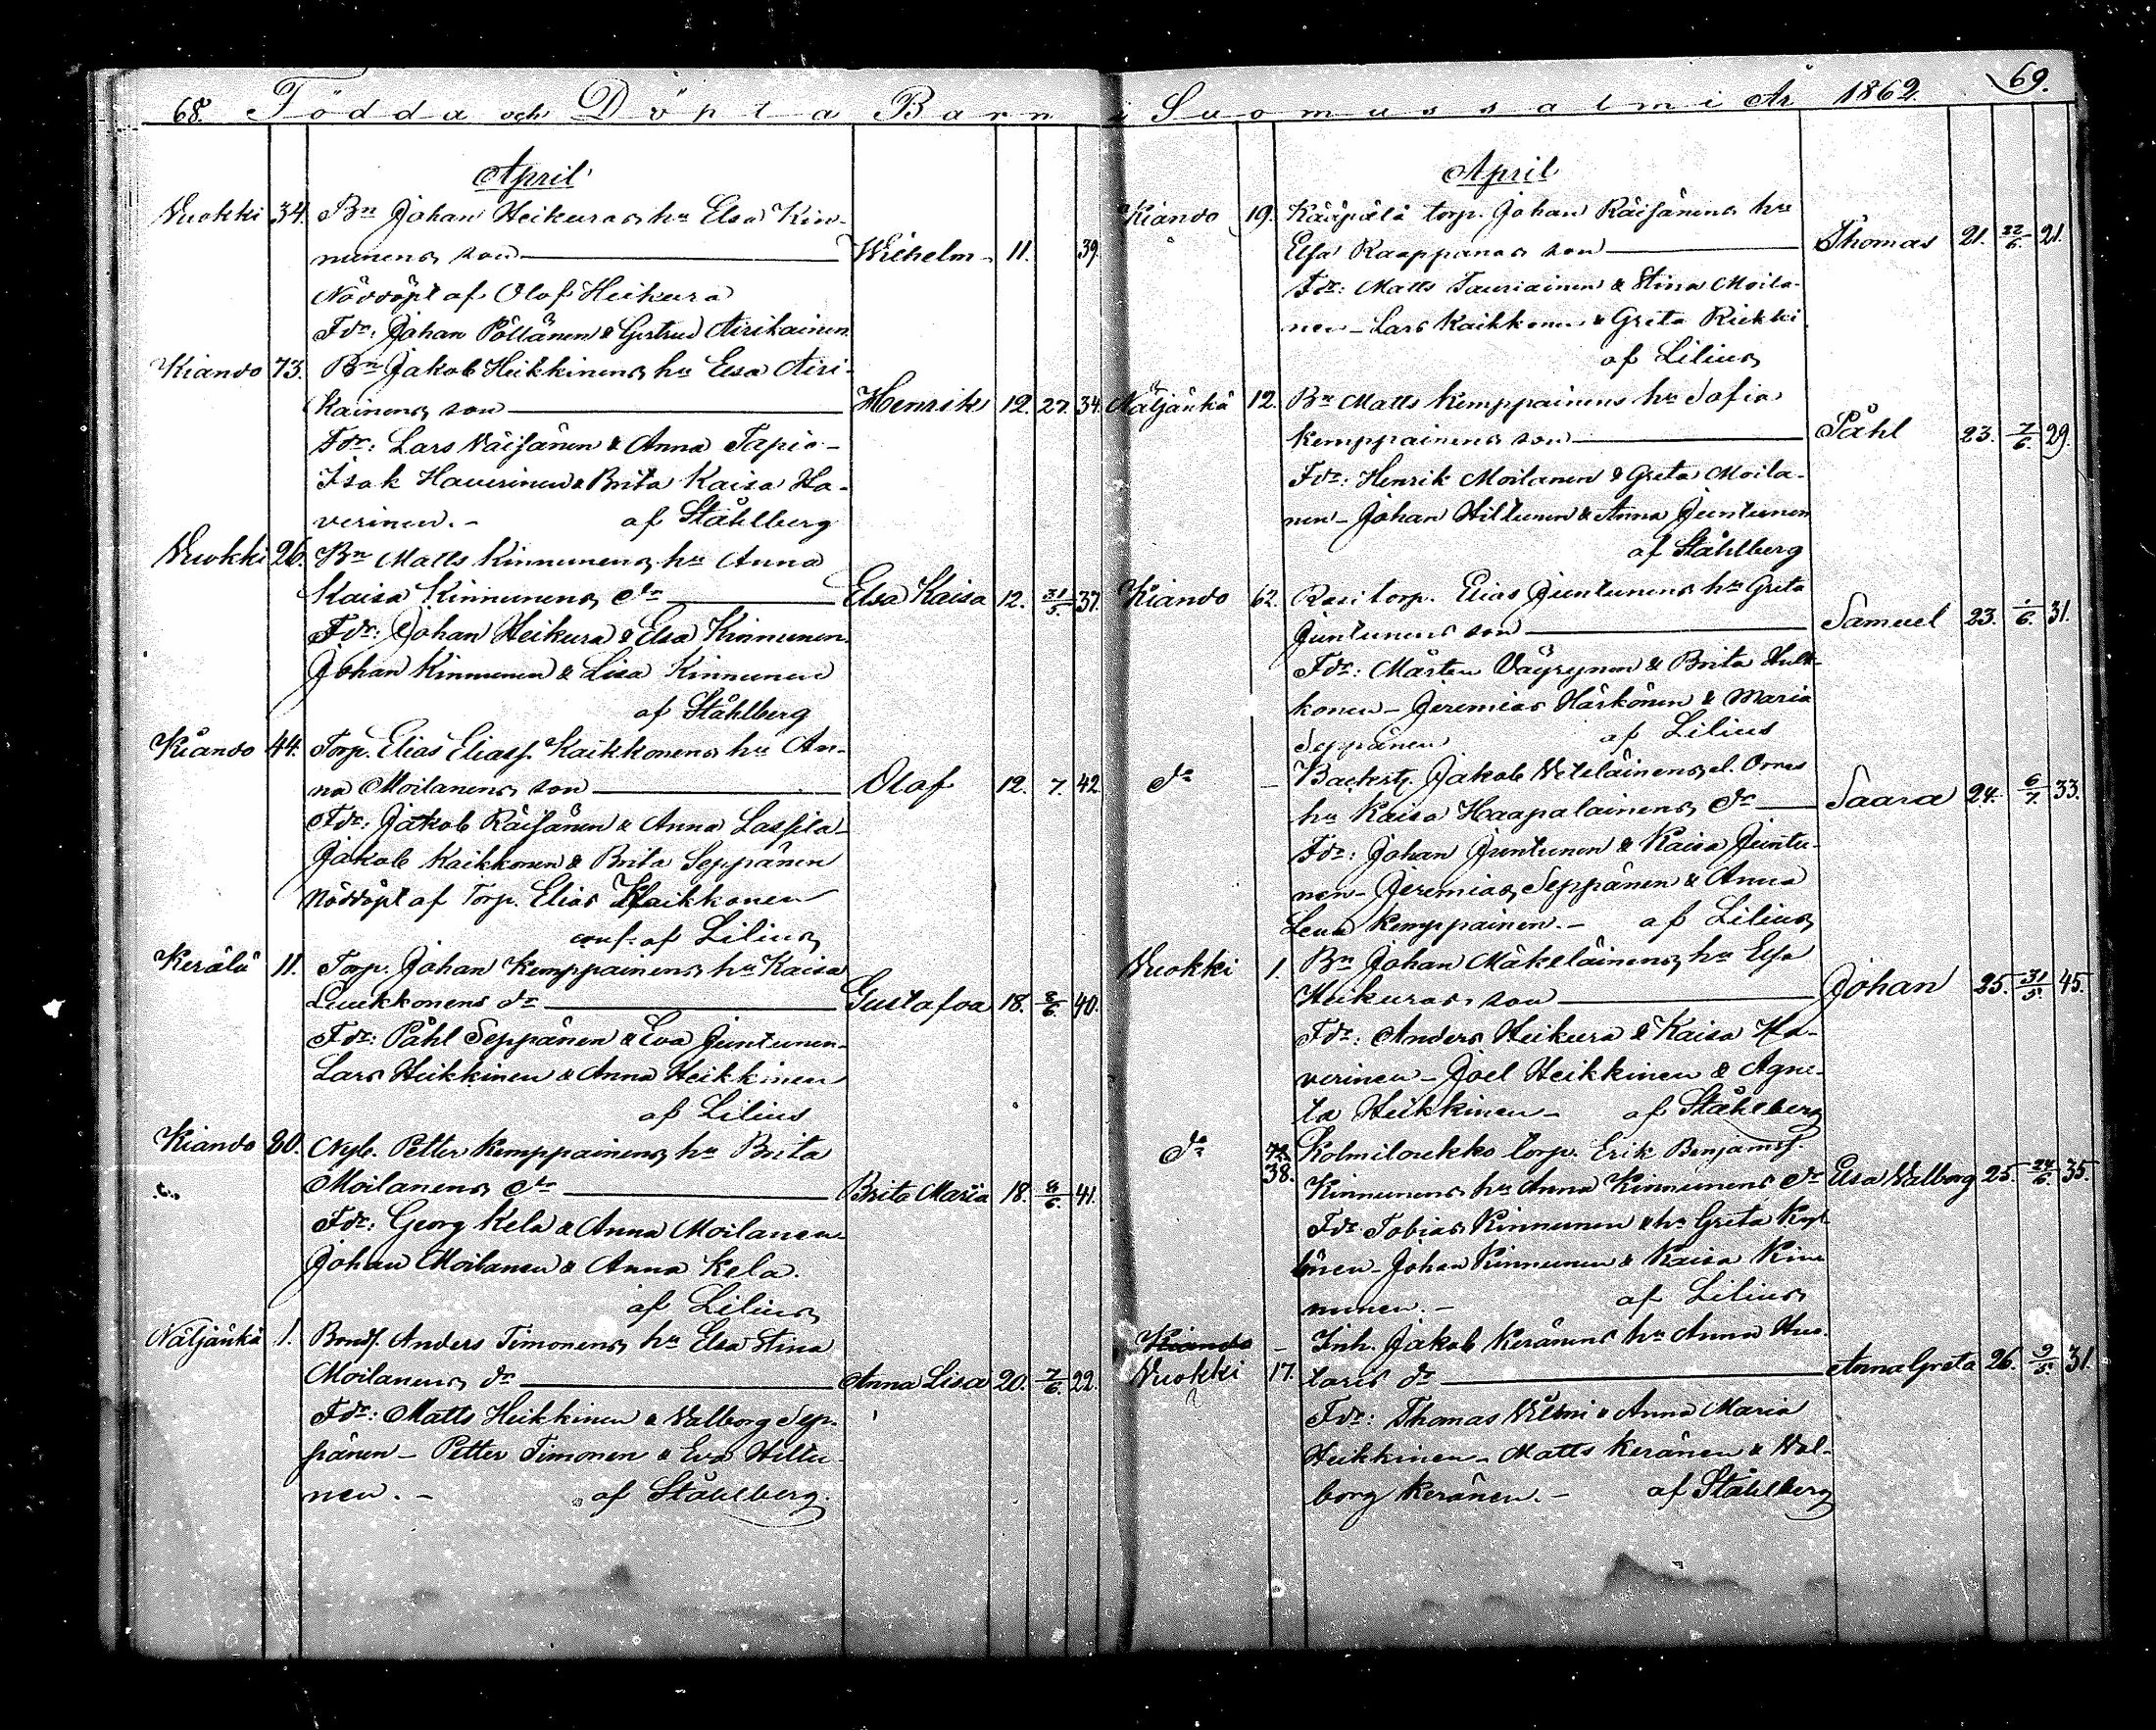 68. Födda och Döpta Barn
April
Wuokki 34. Bn Johan Heikuras hu Elsa Kin-
nunens son Wilhelm 11. 39.
Nöddöpt af Olof Heikura
Fdr: Johan Pöllänen & Gertrud Airikainen
Kiando 73. Bn Jakob Heikkinens hu Elsa Airi-
kainens son Henrik 12. 27. 34.
Fdr: Lars Väisänen & Anna Tapio-
Isak Hauerinen & Brita Kaisa Ha-
verinen. - af Ståhlberg
Wuokki 26. Bn Matts Kinnunens hu Anna
Kaisa Kinnunens dr Elsa Kaisa 12. 31/5. 37.
Fdr: Johan Heikura & Elsa Kinnunen.
Johan Kinnunen & Lisa Kinnunen
af Ståhlberg
Kiando 44. Torp. Elias Eliass. Kaikkonens hu An-
na Moilanens son Olof 12. 7. 42
Fdr: Jakob Räisänen & Anna Lassila-
Jakob Kaikkonen & Brita Seppänen
Nöddöpt af Torp. Elias Kaikkonen
conf. af Lilius
Kerälä 11. Torp. Johan Kemppainens hu Kaisa
Luukkonens dr Gustafva 18. 8/6. 40.
Fdr: Påhl Seppänen & Eva Juntunen-
Lars Heikkinen & Anna Heikkinen
af Lilius
Kiando 20. Nyb. Petter Kemppainens hu Brita
Moilanens dr Brita Maria 18. 8/6. 41.
Fdr: Georg Kela & Anna Moilanen-
Johan Moilanen & Anna Kela.
af Lilius
Näljänkä 1. Bonds. Anders Timonens hu Elsa Stina
Moilanens dr Anna Lisa 20. 7/6. 22.
Fdr: Matts Heikkinen & Walborg Sep-
pänen - Petter Timonen & Eva Hiltu-
nen. - af Ståhlberg.
i Suomussalmi År 1862. 69.
April
Kiando 19. Kääpälä torp. Johan Räisänens hu
Elsa Kaappanas son Thomas 21. 22/6. 21.
Fdr: Matts Tauriainen & Stina Moila-
nen - Lars Kaikkonen & Greta Riekki
af Lilius
Näljänkä 12. Bn Matts Kemppainens hu Sofia
Kemppainens son Påhl 23. 7/6. 29.
Fdr: Henrik Moilanen & Greta Moila-
nen - Johan Hiltunen & Anna Juntunen
af Ståhlberg
Kiando 62. Rasi torp. Elias Juntunens hu Greta
Juntunens son Samuel 23. 1/6. 31.
Fdr: Mårten Väyrynen & Brita Hulk-
konen - Jeremias Härkönen & Maria
Seppänen af Lilius
dr - Backstg. Jakob Veteläinens el. Ornes
hu Kaisa Haapalainens dr Saara 24. 6/7. 33.
Fdr: Johan Juntunen & Kaisa Juntu-
nen - Jeremias Seppänen & Anna
Lena Kemppainen. - af Lilius
Wuokki 1. Bn Johan Mäkeläinens hu Elsa
Heikuras son Johan 25. 31/5. 45.
Fdr: Anders Heikura & Kaisa Ha-
verinen - Joel Heikkinen & Agne-
ta Heikkinen - af Ståhlberg
dr 38. Kolmiloukko torp. Erik Benjamsf.
Kinnunens hu Anna Kinnunens dr Elsa Walborg 25. 24/6. 35.
Fdr Tobias Kinnunen & hu Greta Kyl-
lönen - Johan Kinnunen & Kaisa Kin-
nunen. - af Lilius
Kiando - Inh. Jakob Keränens hu Anna Huo-
Wuokki 17. taris dr Anna Greta 26. 9/5. 31.
Fdr: Thomas Wilmi & Anna Maria
Heikkinen - Matts Keränen & Wal-
borg Keränen. - af Ståhlberg